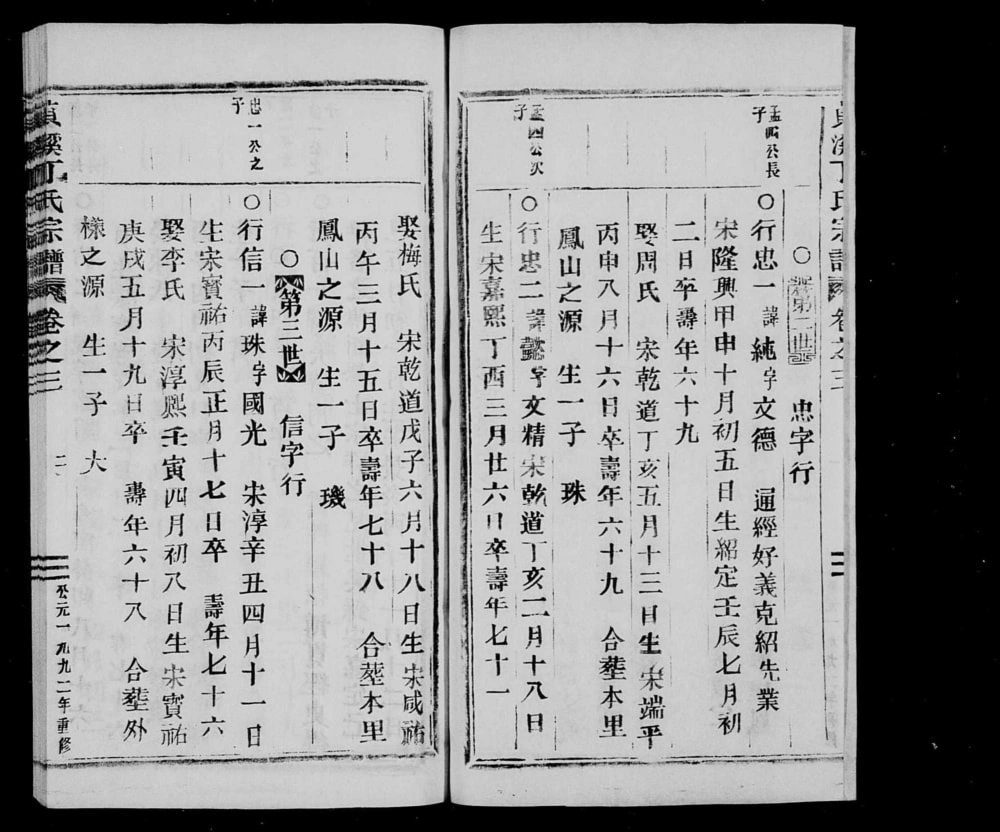 貞溪丁氏宗譜 卷之三
○ 第二世 忠字行
孟四公長子
○行忠一 諱純字文德 通經好義克紹先業
宋隆興甲申十月初五日生紹定壬辰七月初
二日卒壽年六十九
娶周氏 宋乾道丁亥五月十三日生 宋端平
丙申八月十六日卒壽年六十九 合塟本里
鳳山之源 生一子 珠
孟四公次子
○行忠二 諱懿字文精宋乾道丁亥二月十八日
生宋嘉熙丁酉三月廿六日卒壽年七十一
娶梅氏 宋乾道戊子六月十八日生宋咸祐
丙午三月十五日卒壽年七十八 合塟本里
鳳山之源 生一子 璣
○ 第三世 信字行
忠一公之子
○行信一 諱珠字國光 宋淳辛丑四月十一日
生宋寳祐丙辰正月十七日卒 壽年七十六
娶李氏 宋淳熙壬寅四月初八日生 宋寳祐
庚戌五月十九日卒 壽年六十八 合塟外
樣之源 生一子 大
貞溪丁氏宗譜 卷之三 二
公元一九九二年重修